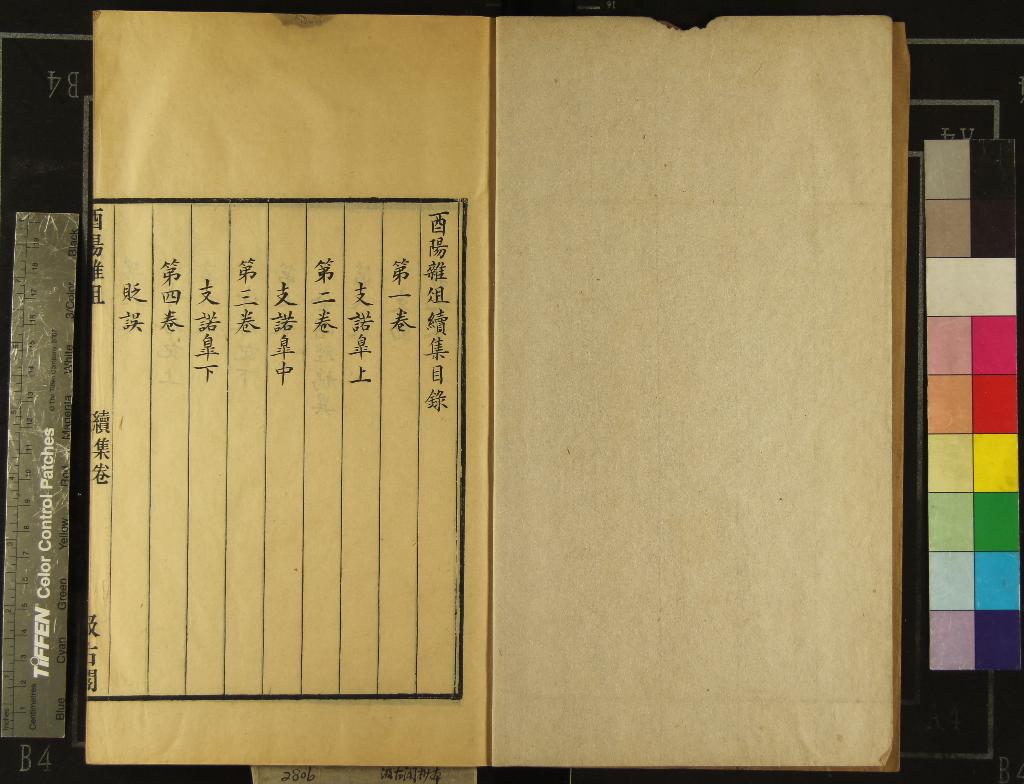 酉陽雜俎續集目錄
第一卷
支諾臯上
第二卷
支諾臯中
第三卷
支諾臯下
第四卷
貶誤
酉陽雜俎
續集卷
汲古閣
B4
B4
A4
A4
TIFFEN Color Control Patches
© The Tiffen Company, 2007
Centimetres
Inches
Blue
Cyan
Green
Yellow
Red
Magenta
White
3/Color
Black
2806